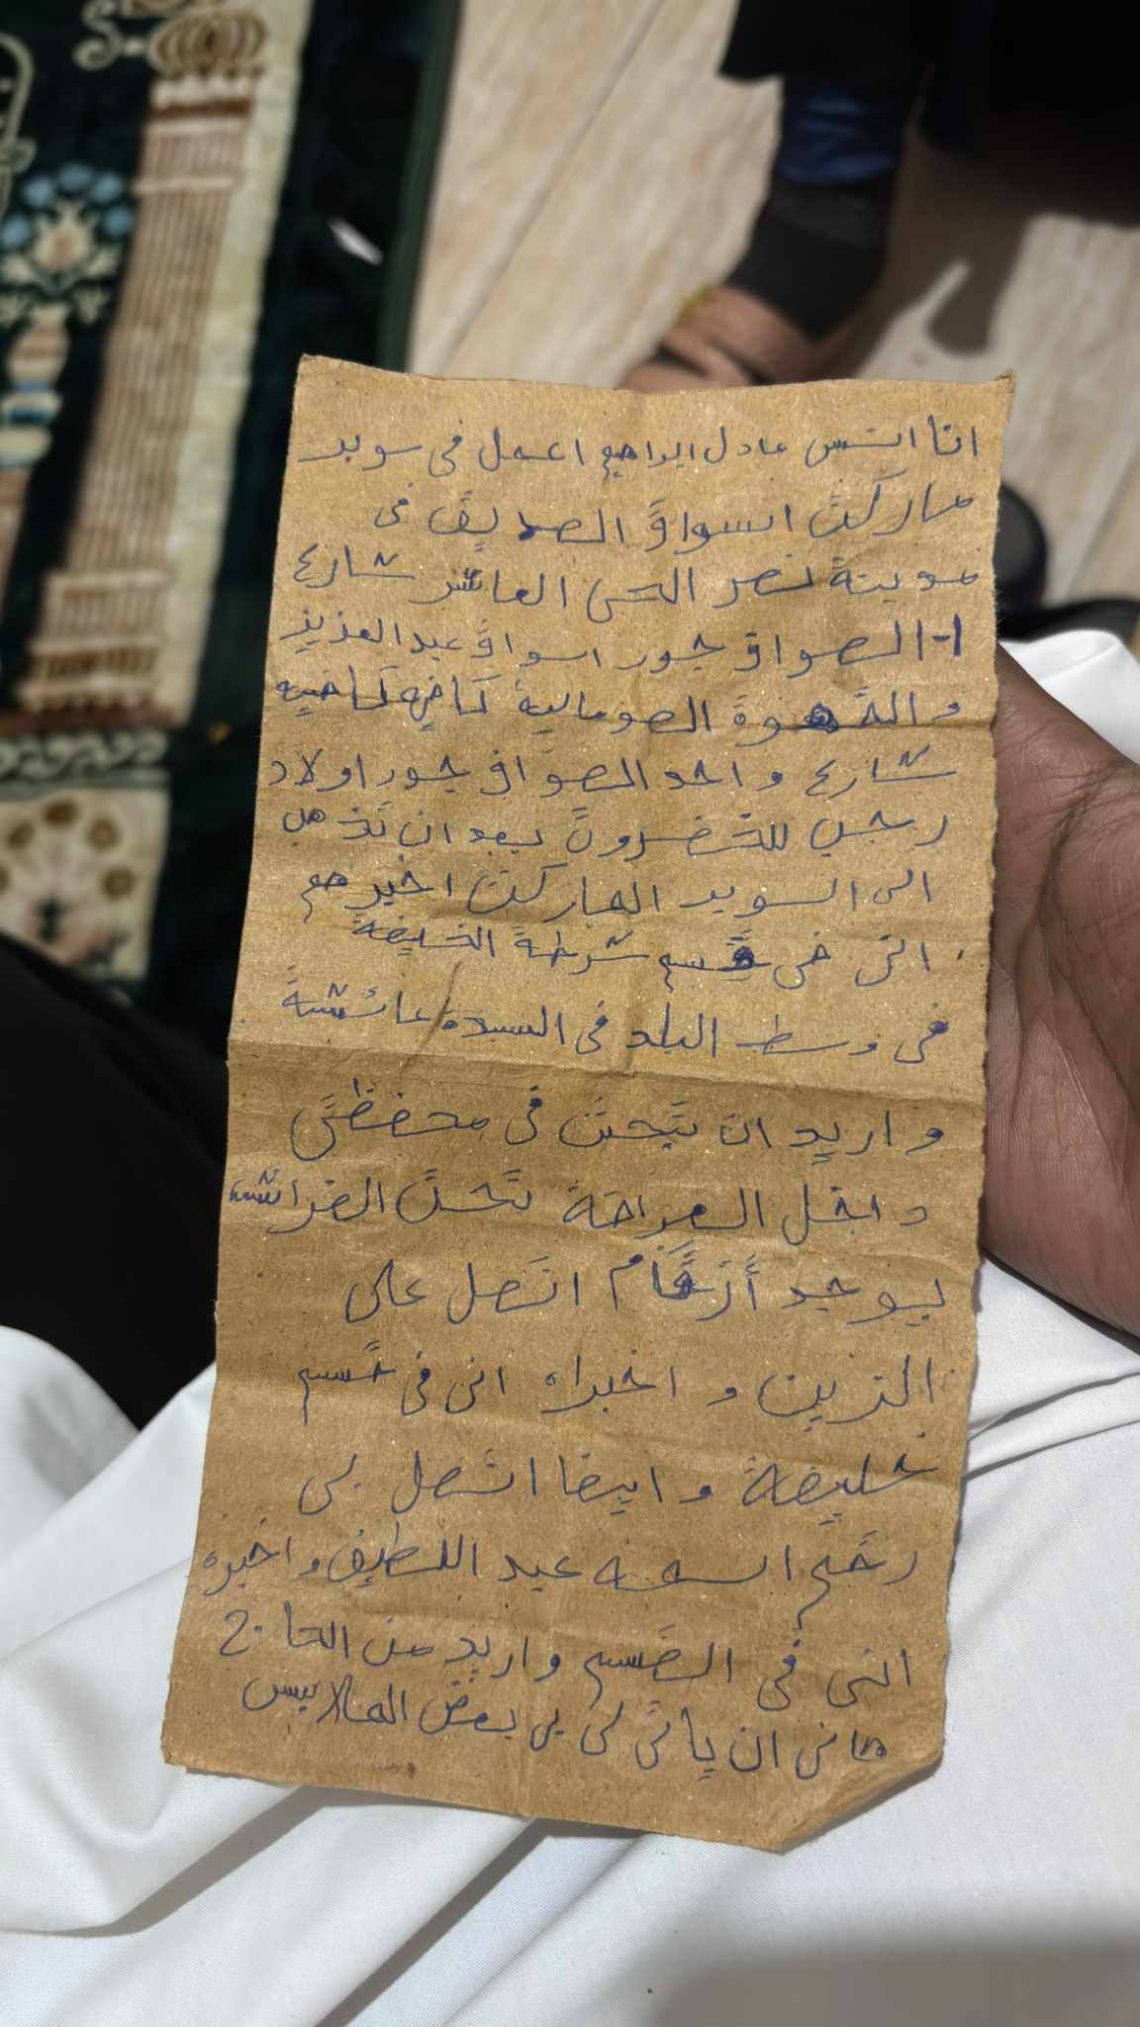 انا انس عادل ابراهيم اعمل في سوبر
ماركت اسواق الصديق في
مدينة نصر الحي العاشر شارع
١- الصواف جور اسواق عبدالعزيز
و القهوة الصومالية كافيه كافيه
شارع و احد الصواف جور اولاد
رجب للخضرون بعد ان تذهب
الى السوبر الماركت اخبرهم
انى فى قسم شرطة الخليفة
فى وسط البلد فى السيدة عائشة
و اريد ان تبحث فى محفظتى
داخل المراتة تحت الفراش
يوجد أرقام اتصل على
الزين و اخبراه انى فى قسم
خليفة و ايضا اتصل بى
رقم اسمه عبد اللطيف و اخبره
انى فى القسم و اريد من الحاج
هانى ان ياتى لى بى بعض الملابس